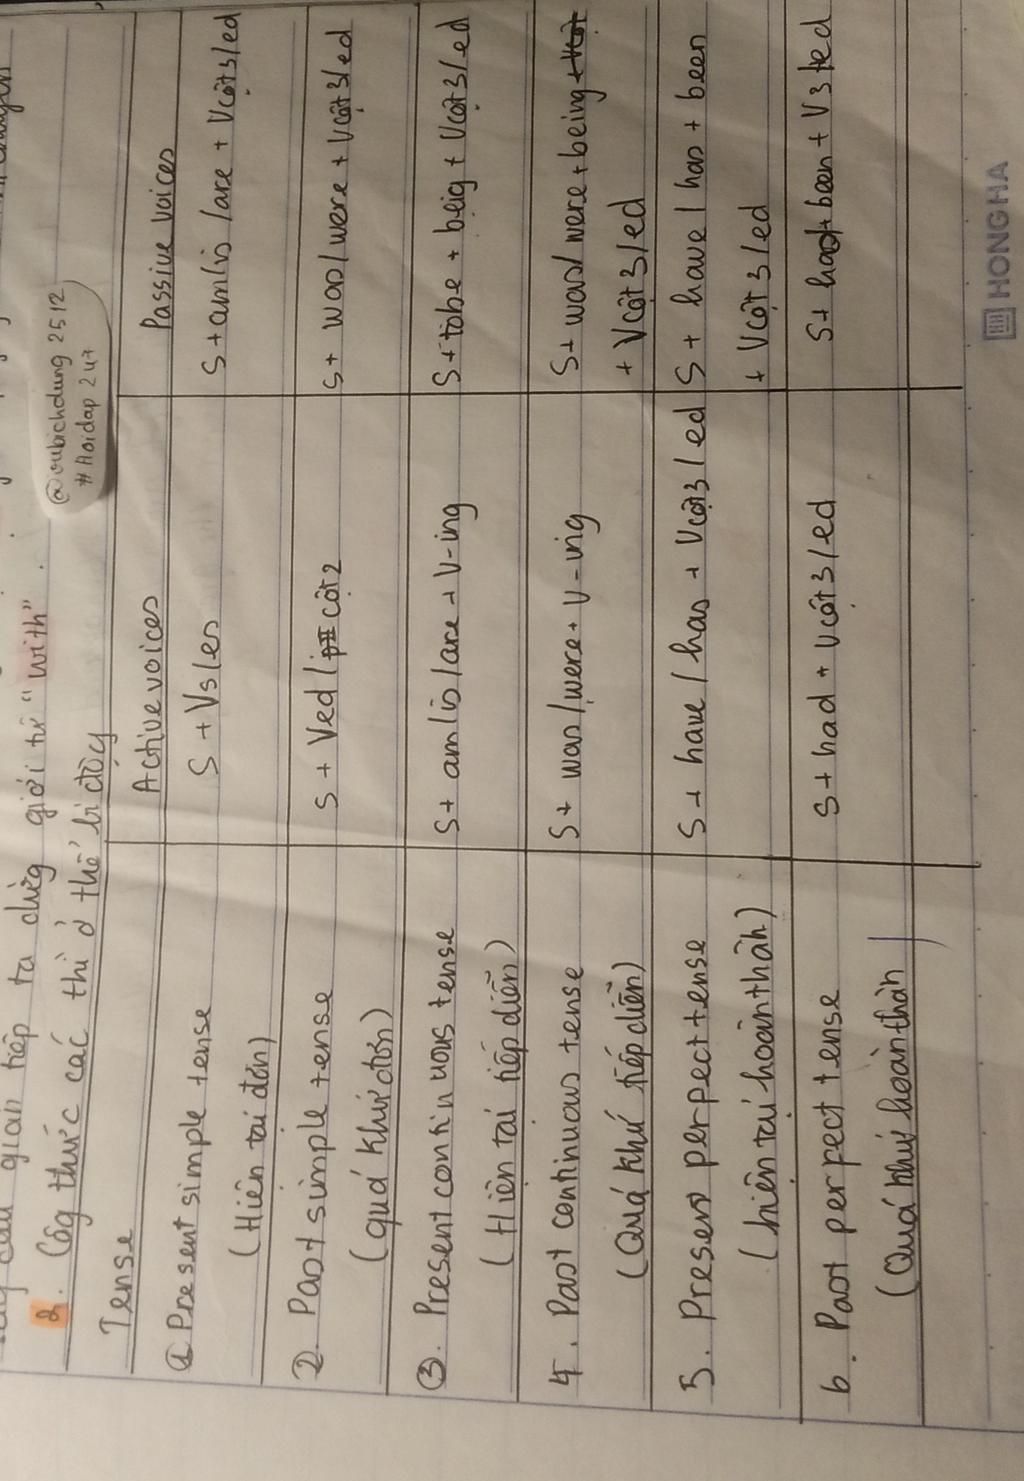 gián tiếp ta dùng giới từ "with".
2. Côg thức các thì ở thể bị độg
@vubichdung2512
#Hoidap247
Tense
Active voices
Passive voices
① Present simple tense
(Hiện tại đơn)
S + Vs/es
S + am/is/are + Vcột3/ed
2. Past simple tense
(quá khứ đơn)
S + Ved/cột2
S + was/were + Vcột3/ed
③. Present continuous tense
(Hiện tại tiếp diễn)
S + am/is/are + V-ing
S + tobe + beig + Vcột3/ed
4. Past continuous tense
(Quá khứ tiếp diễn)
S + was/were + V-ing
S + was/were + being
+ Vcột3/ed
5. Present perpect tense
(hiện tại hoàn thàh)
S + have/has + Vcột3/ed
S + have/has + been
+ Vcột3/ed
6. Past perpect tense
(Quá khứ hoàn thàh)
S + had + Vcột3/ed
S + had + been + V3/ed
HONG HA